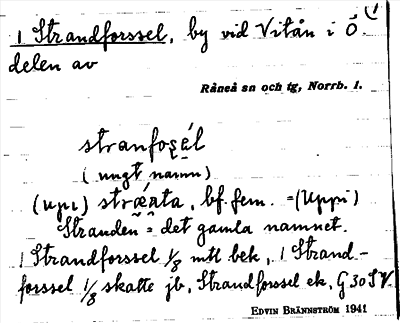 1 Strandforssel, by vid Vitån i Ö.
delen av
Råneå sn och tg, Norrb. l.
stranfosel
(ungt namn)
(upi) stræ̂ata, bf. fem. =(Uppi)
Stranden = det gamla namnet.
1 Strandforssel 1/8 mtl bek, 1 Strand-
forssel 1/8 skatte jb, Strandforssel ek, G 30 SV.
EDVIN BRÄNNSTRÖM 1941